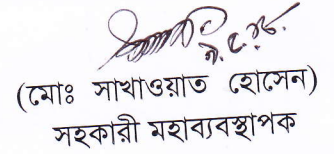 (মোঃ সাখাওয়াত হোসেন)
সহকারী মহাব্যবস্থাপক